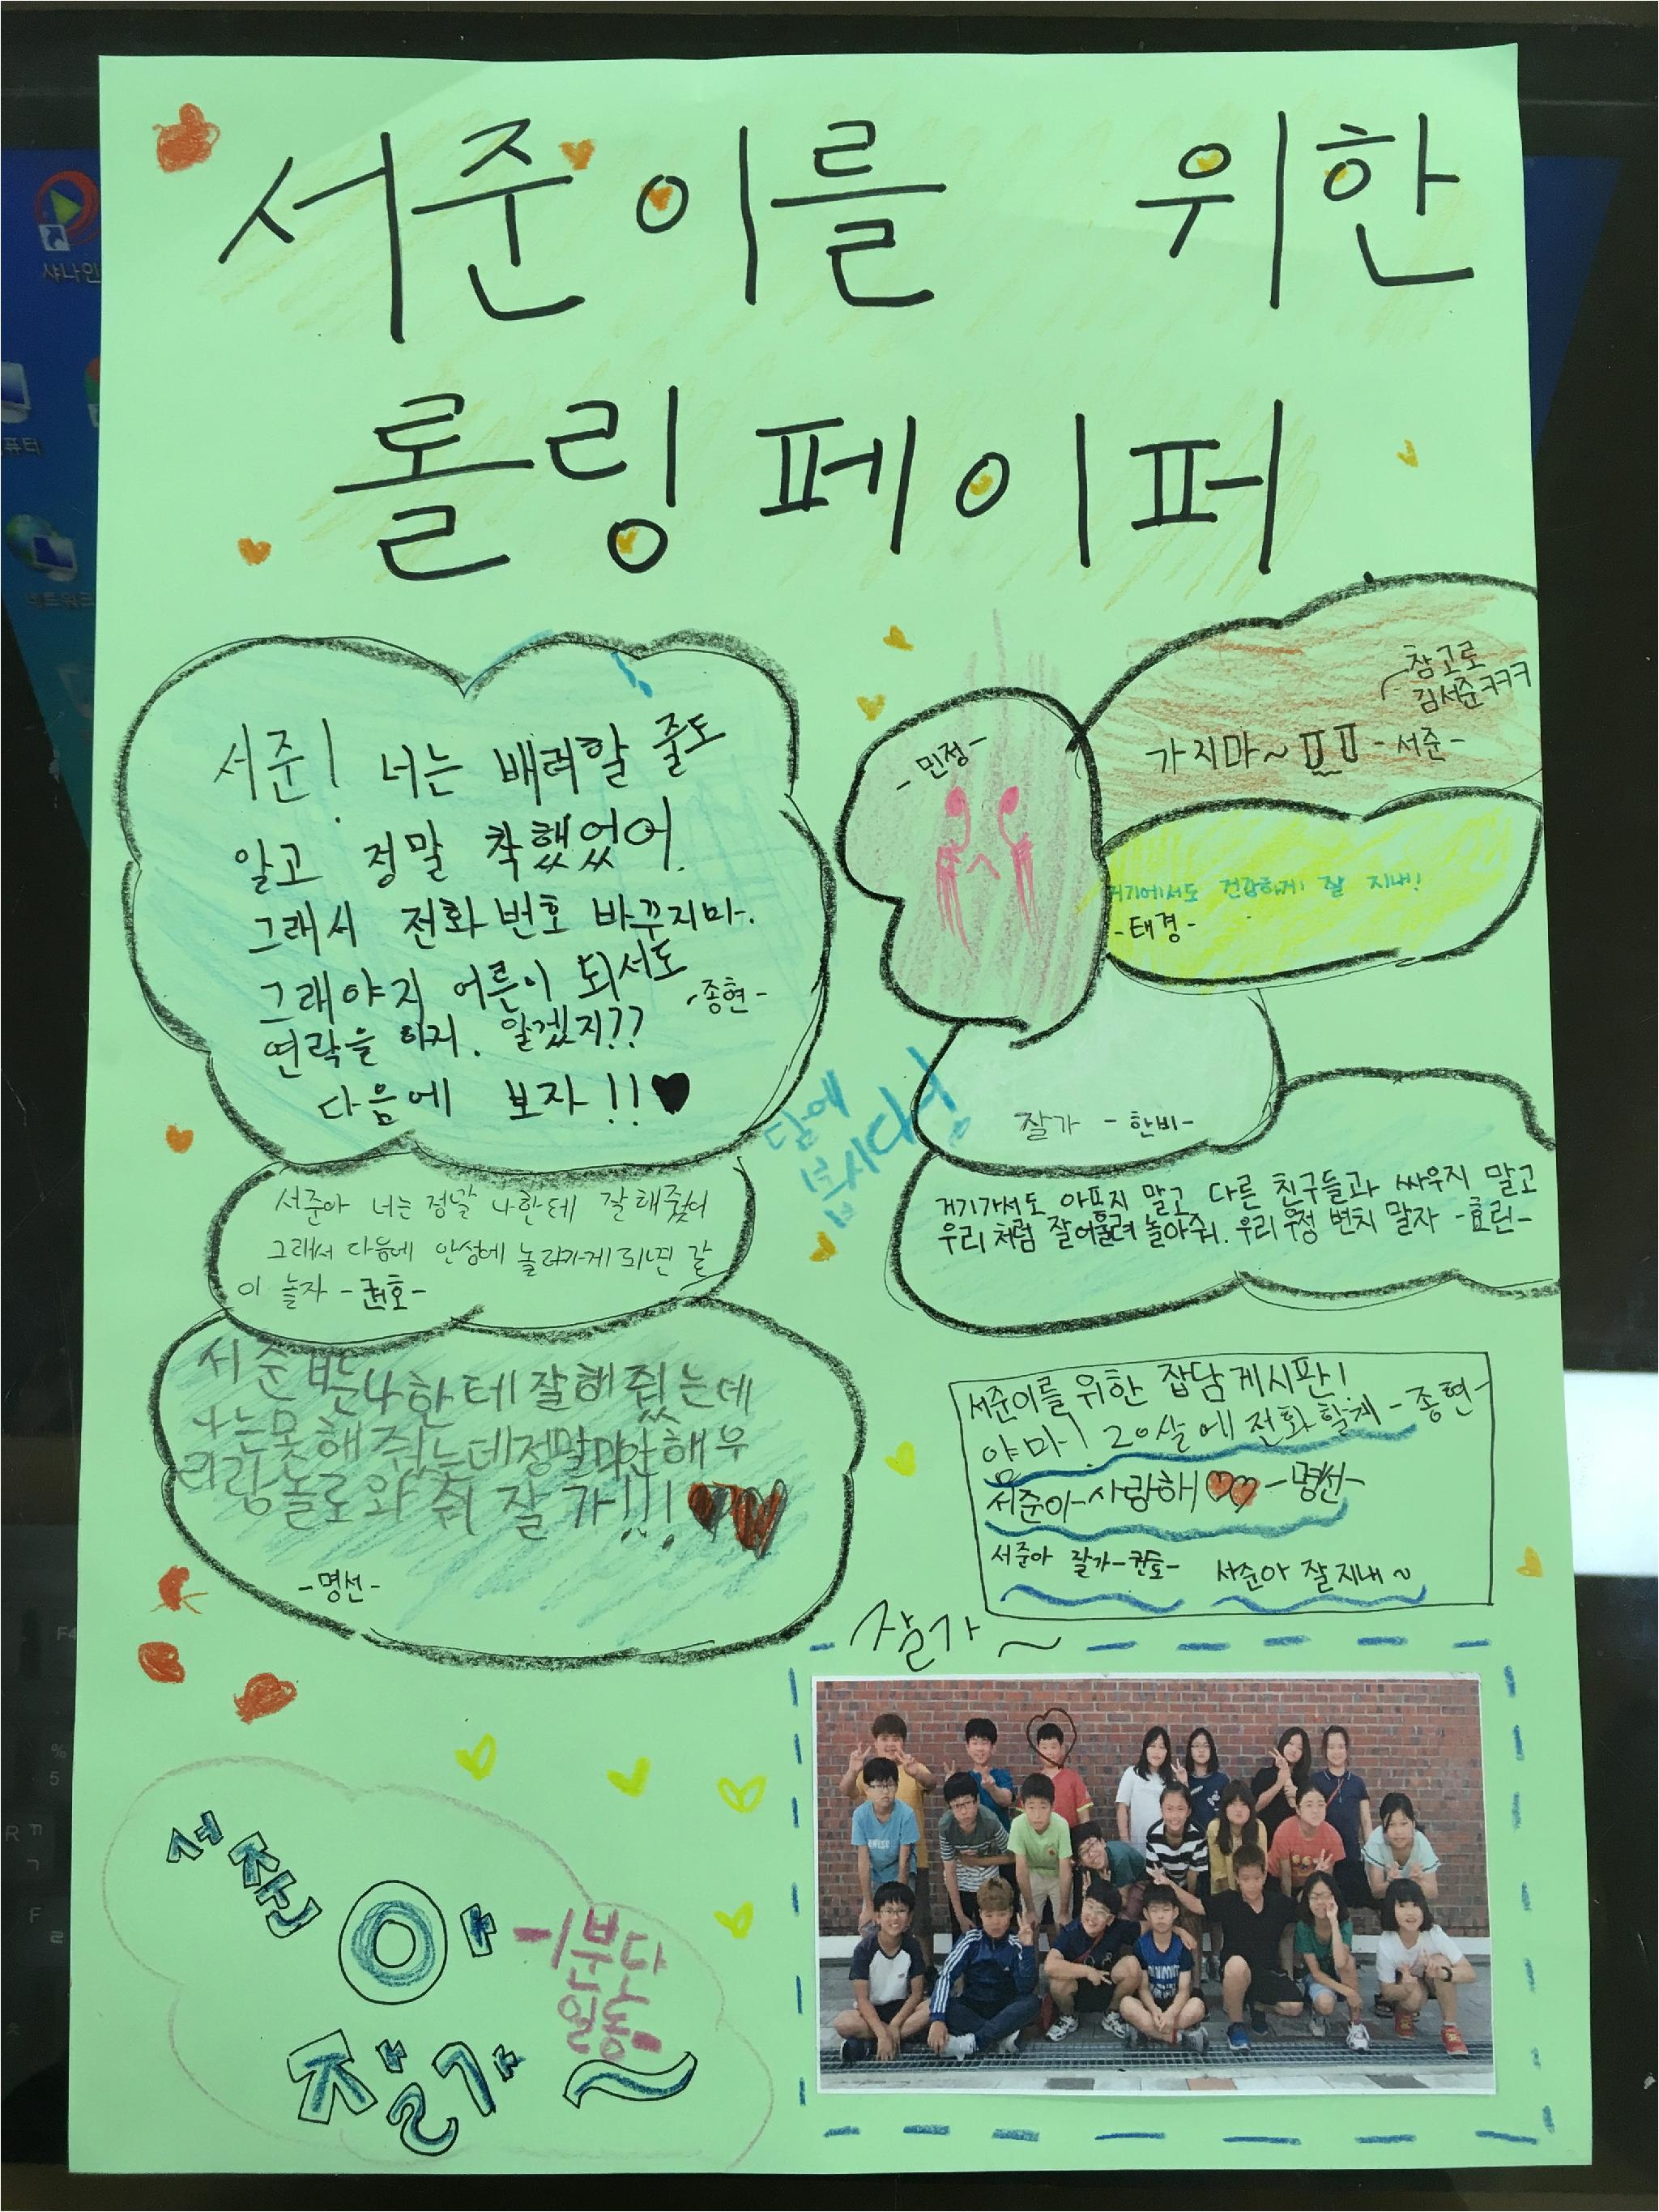 서준이를 위한
롤링페이퍼
서준! 너는 배려할 줄도
알고 정말 착했었어.
그래서 전화번호 바꾸지마.
그래야지 어른이 되서도
연락을 하지. 알겠지??
-종현-
다음에 보자!!♥
서준아 너는 정말 나한테 잘해줬어
그래서 다음에 안성에 놀러가게 되면 같
이 놀자 -권호-
서준 나한테 잘해줬는데
나는못해줘는데정말미안해우
리랑놀로와줘 잘가!!!
-명선-
-민정-
참고로
김서준ㅋㅋㅋ
가지마~ㅠㅠ -서준-
거기에서도 건강하게 잘 지내!
-태경-
잘가 -한비-
담에
봅시다
거기가서도 아프지 말고 다른 친구들과 싸우지 말고
우리처럼 잘어울려 놀아줘. 우리 우정 변치 말자 -효린-
서준이를 위한 잡담게시판!
얌마! 20살에 전화할게 -종현-
서준아 사랑해♥♥ -명선-
서준아 잘가
서준아 잘지내~
잘가~
서준아
-1분단
일동-
잘가~
샤나인
퓨터
네트워크
F4
%
5
R ㄲ
ㄱ
F
ㄹ